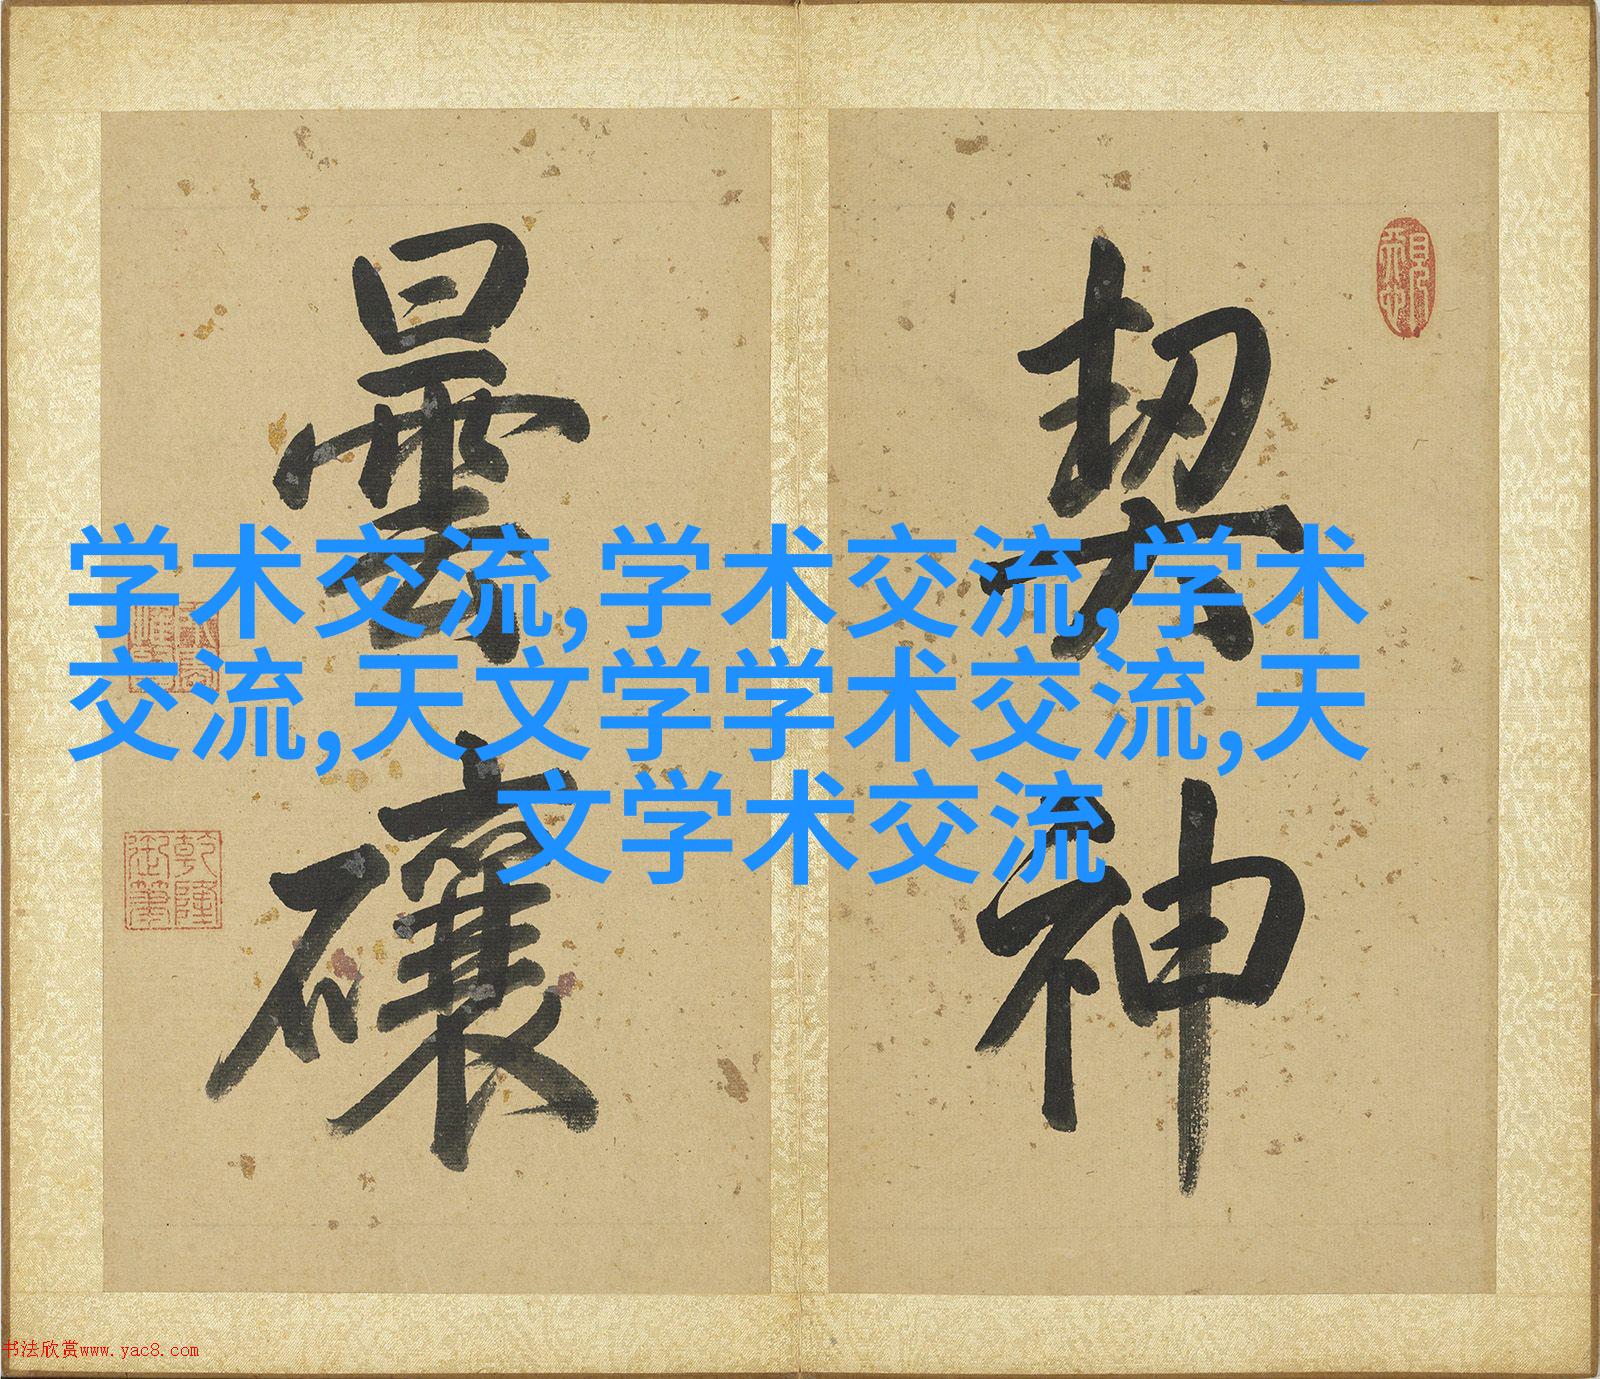 学术交流,学术交流,学术
交流,天文学学术交流,天
文学术交流
契神
曇
乾隆
御筆
书法欣赏www.yac8.com